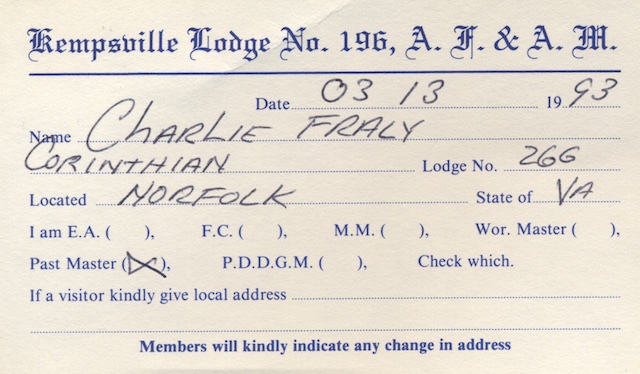 Kempsville Lodge No. 196, A. F. & A. M.
Date 03 13 1993
Name Charlie Fraly
Corinthian Lodge No. 266
Located Norfolk State of VA
I am E.A. ( ), F.C. ( ), M.M. ( ), Wor. Master ( ),
Past Master (X), P.D.D.G.M. ( ), Check which.
If a visitor kindly give local address
Members will kindly indicate any change in address